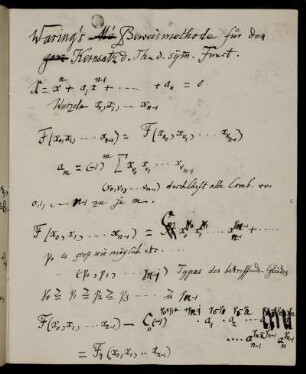 Waring's Beweismethode für den
Kernsatz d. Th. d. sym. Funct.
X = x^n + a_1 x^{n-1} + ···· + a_n = 0
Wurzeln x_0, x_1, ··· x_{n-1}
F(x_0, x_1, ··· x_{n-1}) = F(x_{ν_0}, x_{ν_1}, ··· x_{ν_{n-1}})
a_m = (-1)^m [x_{ν_0} x_{ν_1} ··· x_{ν_{m-1}}
(ν_0, ν_1, ··· ν_{m-1}) durchläuft alle Comb. von
0, 1, ··· n-1 zu je m.
F(x_0, x_1, ··· x_{n-1}) = C x_0^{γ_0} x_1^{γ_1} ··· x_{n-1}^{γ_{n-1}} + ···
γ_0 = gross wie möglich etc.
(γ_0, γ_1, ··· γ_{n-1}) Typus des betreffenden Gliedes
γ_0 ≥ γ_1 ≥ γ_2 ≥ γ_3 ···· ≥ γ_{n-1}
F(x_0, x_1, ··· x_{n-1}) - C
= F_1(x_0, x_1, ·· x_{n-1})